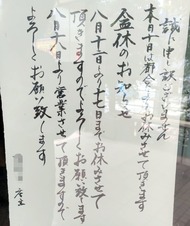 誠に申し訳ございません
本日十日は都合によりお休みさせて頂きます
盆休のお知らせ
八月十一日より十七日までお休みさせて
頂きますのでよろしくお願い致します
八月十八日より営業させて頂きますので
よろしくお願い致します
店主